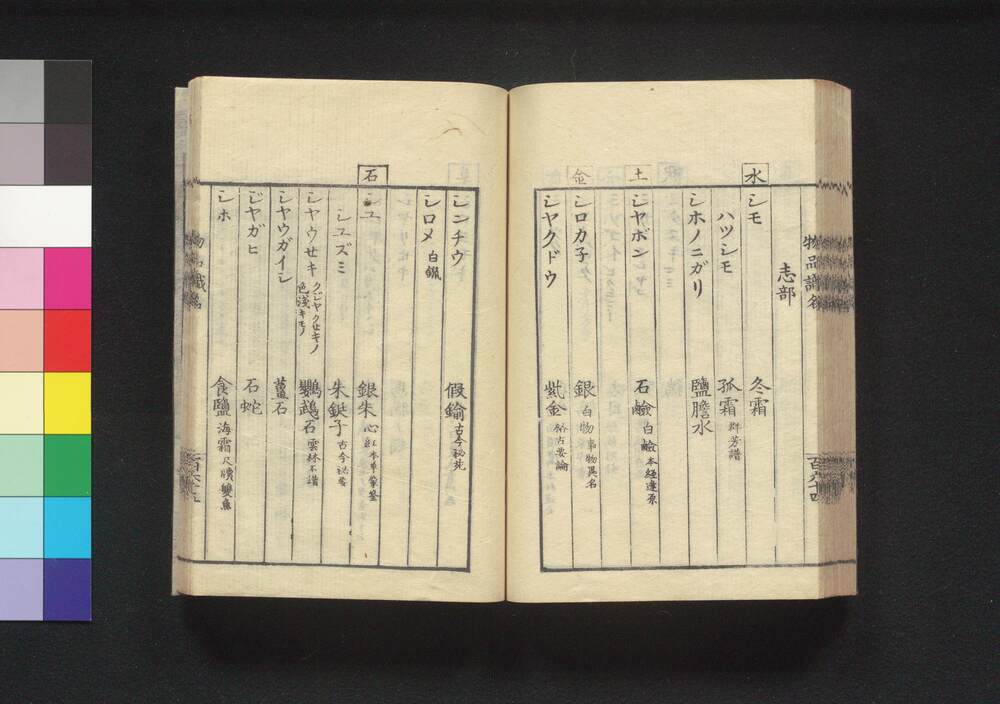 物品識名
志部
水
シモ 冬霜
ハツシモ 孤霜 群芳譜
シホノニガリ 鹽膽水
土
シヤボン 石鹼 白鹼 本經逢原
金
シロカ子 銀 白物 事物異名
シヤクドウ 紫金 格古要論
百六十四
シンチウ 假鍮 古今秘苑
シロメ 白鑞
石
シユ 銀朱 心紅 本草彙箋
シユズミ 朱錠子 古今秘苑
シヤウセキ クジヤクセキノ色淺キモノ 鸚鵡石 雲林石譜
シヤウガイシ 薑石
ジヤガヒ 石蛇
シホ 食鹽 海霜 尺牘雙魚
物品識名
百六十五